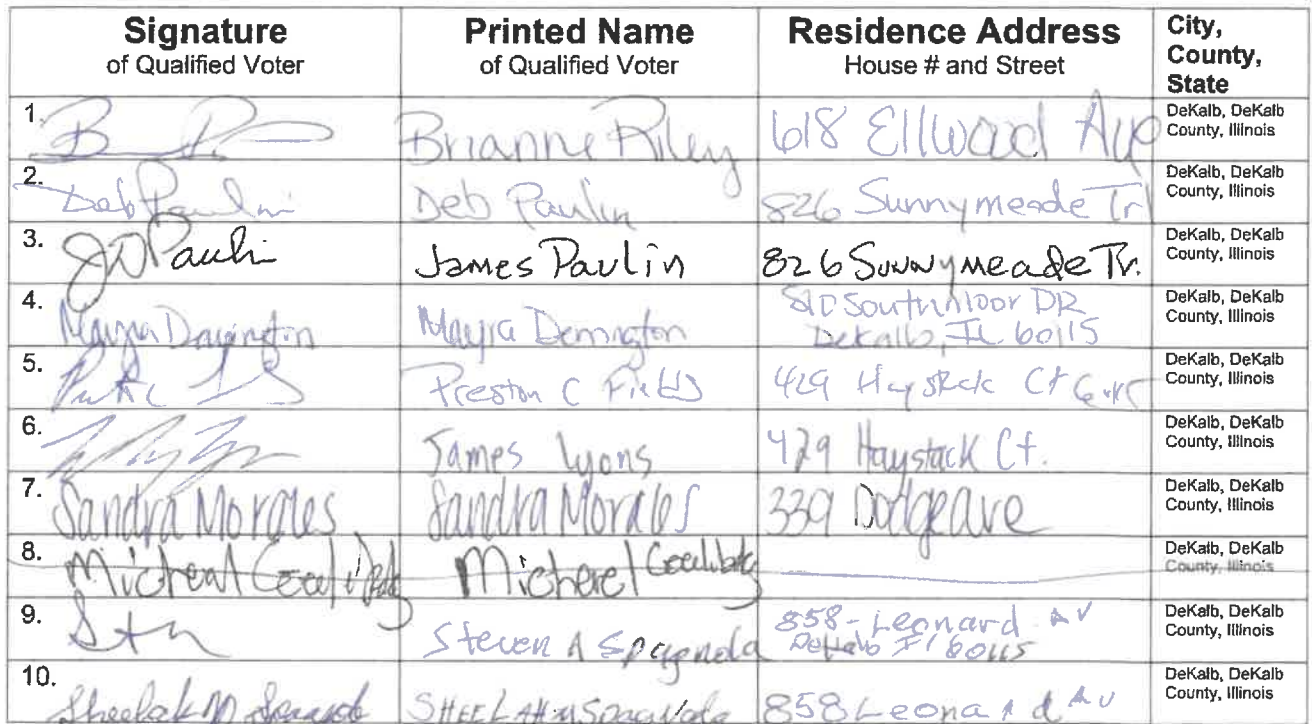 Signature
of Qualified Voter
Printed Name
of Qualified Voter
Residence Address
House # and Street
City,
County,
State
1. Brianne Riley 618 Ellwood Ave DeKalb, DeKalb
County, Illinois
2. Deb Paulin Deb Paulin 826 Sunnymeade Trl DeKalb, DeKalb
County, Illinois
3. JD Paulin James Paulin 826 Sunnymeade Tr. DeKalb, DeKalb
County, Illinois
4. Mayra Mayra Southmoor DR DeKalb, DeKalb
DeKalb, IL 60115 County, Illinois
5. Preston C Fields 429 Haystack Ct DeKalb, DeKalb
County, Illinois
6. James Lyons 429 Haystack Ct. DeKalb, DeKalb
County, Illinois
7. Sandra Morales Sandra Morales 339 Dodge ave DeKalb, DeKalb
County, Illinois
8. Micheal Micherel DeKalb, DeKalb
County, Illinois
9. Steven A 858-Leonard AV DeKalb, DeKalb
DeKalb Il 60115 County, Illinois
10. Sheelah M SHEELAH M 858 Leonard AV DeKalb, DeKalb
County, Illinois